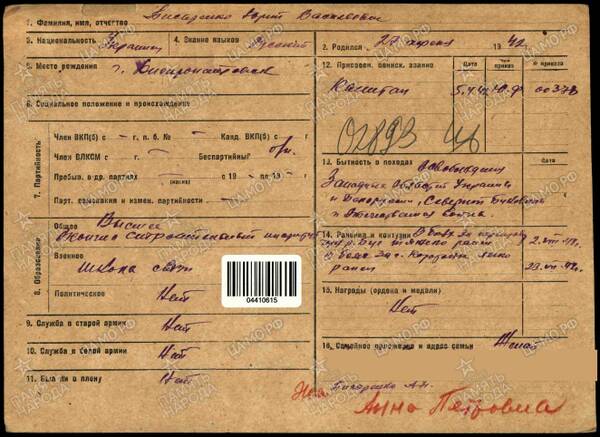 1. Фамилия, имя, отчество Писаренко Юрий Васильевич
3. Национальность Украинец 4. Знание языков Русский
5. Место рождения г. Днепропетровск
6. Социальное положение и происхождение
7. Партийность
Член ВКП(б) с — г. п. б. № — Канд. ВКП(б) с — г.
Член ВЛКСМ с — г. Беспартийный
Пробыв. в др. партиях — с 19 — по 19 — г.
Парт. взыскания и измен. партийности —
8. Образование
Общее Высшее
Окончил строительный институт
Военное
школа связи
Политическое Нет
04410615
9. Служба в старой армии Нет
10. Служба в белой армии Нет
11. Был ли в плену Нет
2. Родился 27 апреля 19
12. Присвоен. воинск. звание Дата Чей приказ № приказа
Капитан 5.4.42 Ю.Ф. 00373
02893
13. Бытность в походах Освобождение Дата
Западных областей Украины
и Белоруссии, Северной Буковины
и Отечественная война.
14. Ранения и контузии
ранен
15. Награды (ордена и медали)
Нет
16. Семейное положение и адрес семьи Женат
Жена Писаренко А.П.
Анна Петровна
ПАМЯТЬ НАРОДА
ЦАМО.РФ